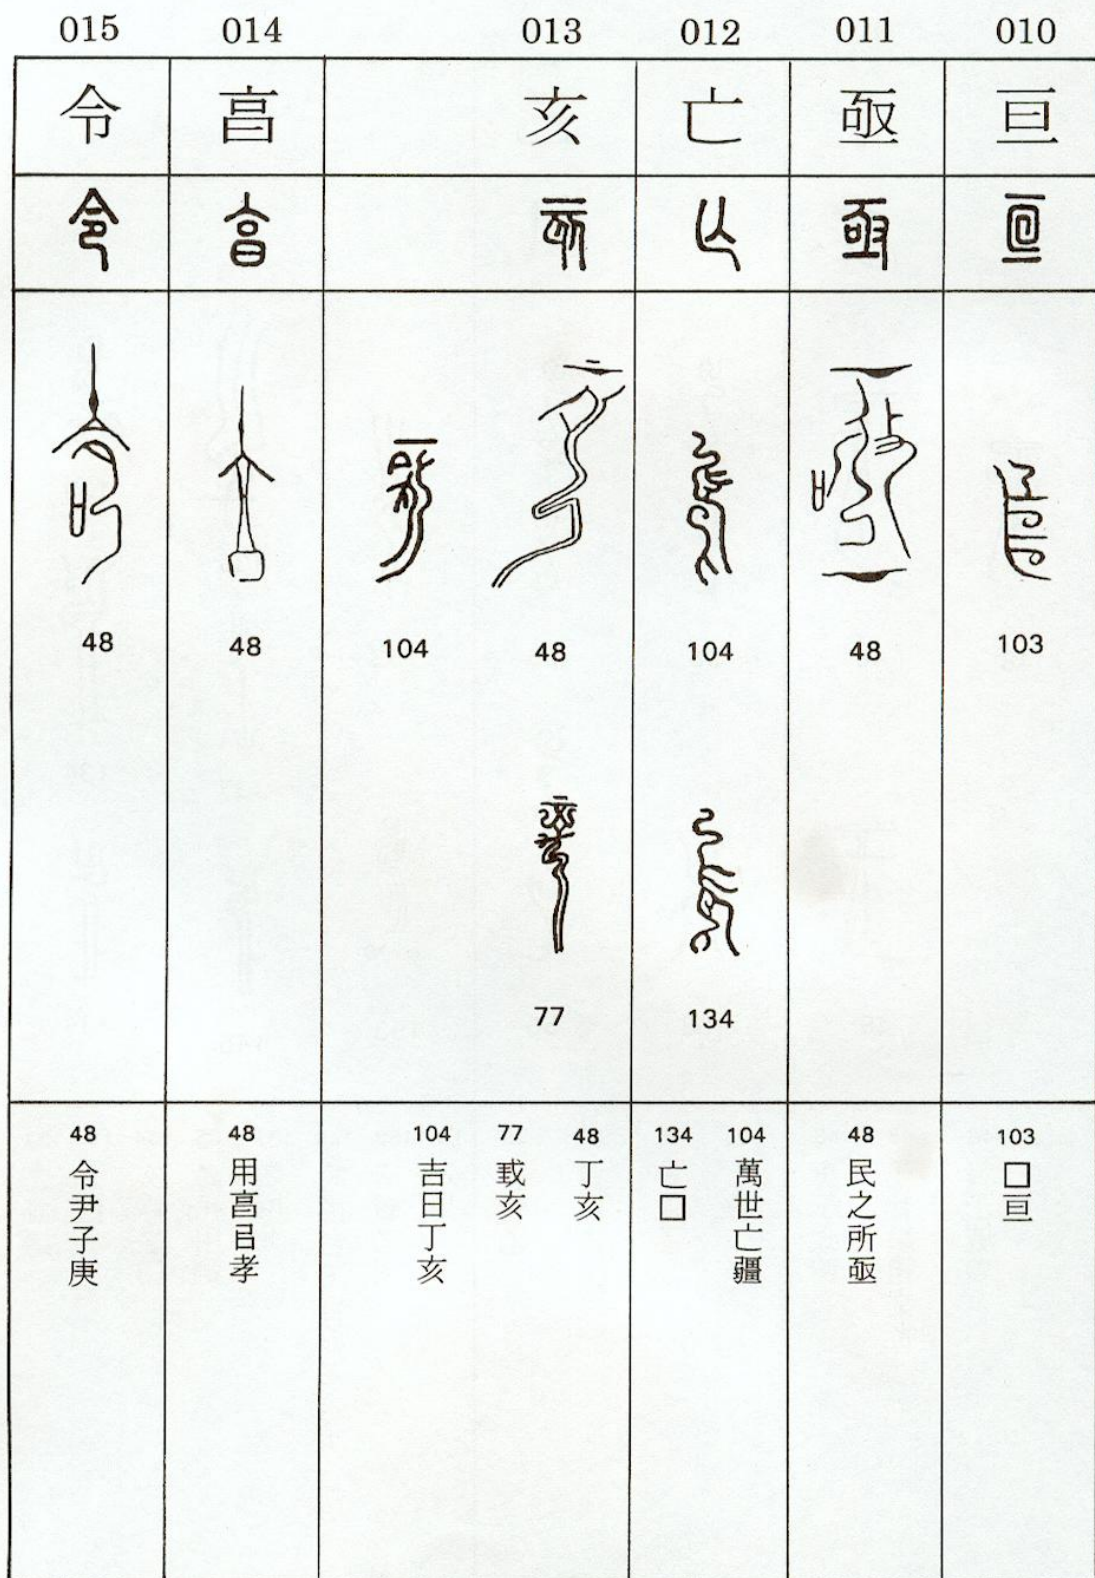 010
亘
103
103
囗亘
011
亟
48
48
民之所亟
012
亡
104
134
104
萬世亡疆
134
亡囗
013
亥
48
77
104
48
丁亥
77
亥
104
吉日丁亥
014
亯
48
48
用亯㠯孝
015
令
48
48
令尹子庚